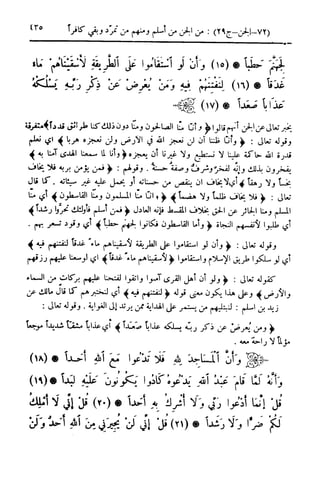 (٧٢-الجن-ج٢٩) : من الجن من أسلم ومنهم من تمرّد وبقي كافراً ٤٣٥
لِجَهَنَّمَ حَطَباً (١٥) وَأَن لَّوِ اسْتَقَامُوا عَلَى الطَّرِيقَةِ لَأَسْقَيْنَاهُم مَّاء
غَدَقاً (١٦) لِنَفْتِنَهُمْ فِيهِ وَمَن يُعْرِضْ عَن ذِكْرِ رَبِّهِ يَسْلُكْهُ
عَذَاباً صَعَداً (١٧)
يخبر تعالى عن الجن أنهم قالوا ﴿ وأنا منّا الصالحون ومنّا دون ذلك كنا طرائق قدداً ﴾ متفرقة
وقوله تعالى : ﴿ وأنّا ظننا أن لن نعجز الله في الأرض ولن نعجزه هرباً ﴾ أي نعلم
قدرة الله حاكمة علينا لا نستطيع ولا غيرنا أن يعجزه ﴿ وأنا لما سمعنا الهدى آمنا به ﴾
يفخرون بذلك وإنّه لفخرٌ وشرفٌ وصفةٌ حسنة . وقولهم : ﴿ فمن يؤمن بربه فلا يخاف
بخساً ولا رهقاً ﴾ أي لا يخاف ان ينقص من حسناته أو يحمل عليه غير سيئاته . كما قال
تعالى : ﴿ فلا يخاف ظلماً ولا هضماً ﴾ ﴿ وأنّا منّا المسلمون ومنّا القاسطون ﴾ أي منّا
المسلم ومنا الجائر عن الحق بخلاف المقسط فإنه العادل ﴿ فمن أسلم فأولئك تحرّوا رشداً ﴾
أي طلبوا لأنفسهم النجاة ﴿ وأما القاسطون فكانوا لجهنم حطباً ﴾ أي وقود تسعر بهم .
وقوله تعالى : ﴿ وأن لو استقاموا على الطريقة لأسقيناهم ماءً غدقاً لنفتنهم فيه ﴾
أي لو سلكوا طريق الإسلام واستقاموا ﴿ لأسقيناهم ماءً غدقاً ﴾ أي اوسعنا عليهم رزقهم
كقوله تعالى : ﴿ ولو أن أهل القرى آمنوا واتقوا لفتحنا عليهم بركات من السماء
والأرض ﴾ وعلى هذا يكون معنى قوله ﴿ لنفتنهم فيه ﴾ أي لنختبرهم كما قال مالك عن
زيد بن اسلم : لنبتليهم من يستمر على الهداية ممن يرتد إلى الغواية . وقوله تعالى :
﴿ ومن يُعرِضْ عن ذكر ربّه يسلكه عذاباً صعَداً ﴾ أي عذاباً مشقاً شديداً موجعاً
مؤلماً لا راحة معه .
وَأَنَّ الْمَسَاجِدَ لِلَّهِ فَلَا تَدْعُوا مَعَ اللَّهِ أَحَداً (١٨)
وَأَنَّهُ لَمَّا قَامَ عَبْدُ اللَّهِ يَدْعُوهُ كَادُوا يَكُونُونَ عَلَيْهِ لِبَداً (١٩)
قُلْ إِنَّمَا أَدْعُوا رَبِّي وَلَا أُشْرِكُ بِهِ أَحَداً (٢٠) قُلْ إِنِّي لَا أَمْلِكُ
لَكُمْ ضَرّاً وَلَا رَشَداً (٢١) قُلْ إِنِّي لَن يُجِيرَنِي مِنَ اللَّهِ أَحَدٌ وَلَنْ